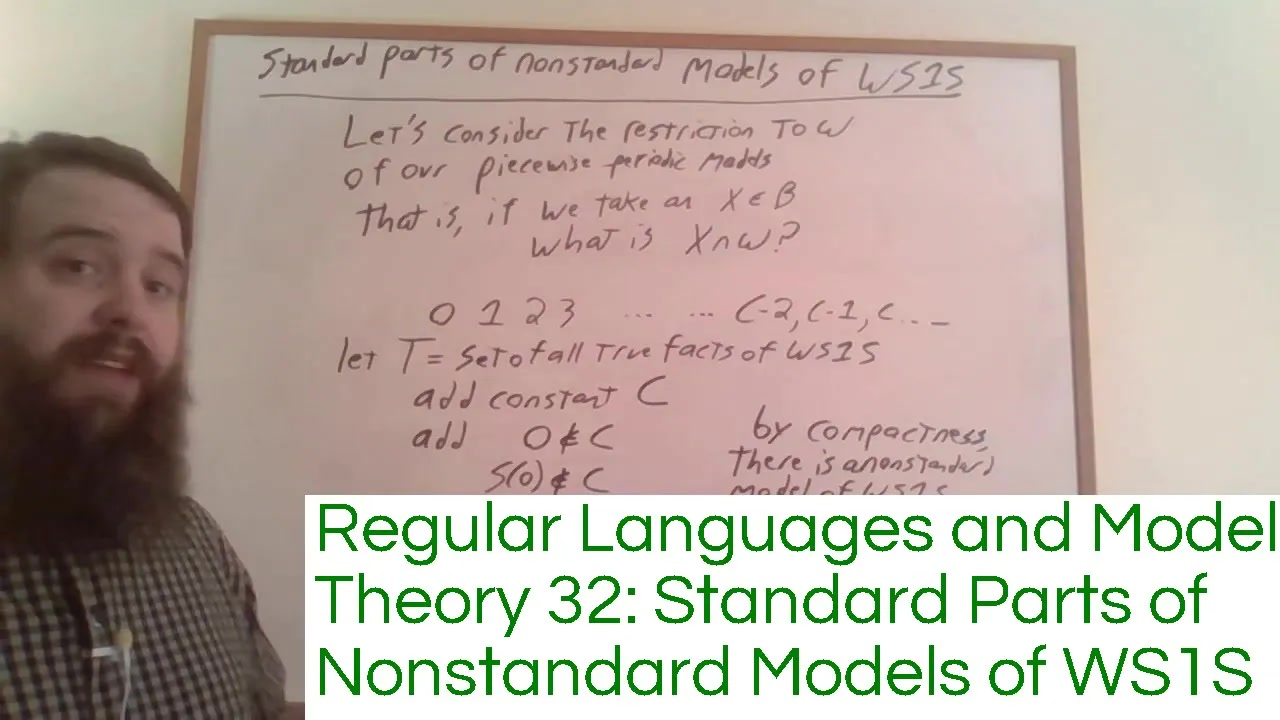 Standard parts of nonstandard Models of WS1S
Let's consider the restriction to ω
of our piecewise periodic models
that is, if we take an X ∈ B
what is X ∩ ω?
0 1 2 3 ... ... C-2, C-1, C...
let T = set of all true facts of WS1S
add constant C
add 0 ∉ C
S(0) ∉ C
by compactness,
there is a nonstandard
model of WS1S
Regular Languages and Model
Theory 32: Standard Parts of
Nonstandard Models of WS1S